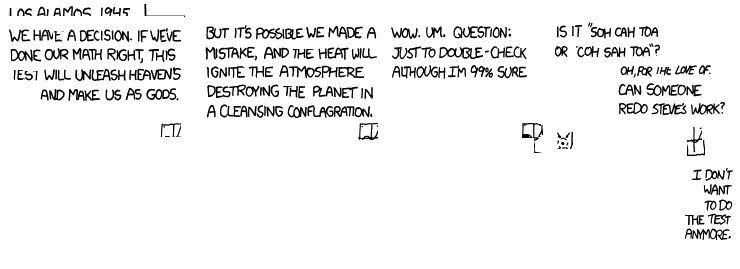 LOS ALAMOS, 1945
WE HAVE A DECISION. IF WE'VE
DONE OUR MATH RIGHT, THIS
TEST WILL UNLEASH HEAVEN'S
AND MAKE US AS GODS.
BUT IT'S POSSIBLE WE MADE A
MISTAKE, AND THE HEAT WILL
IGNITE THE ATMOSPHERE
DESTROYING THE PLANET IN
A CLEANSING CONFLAGRATION.
WOW. UM. QUESTION:
JUST TO DOUBLE-CHECK
ALTHOUGH I'M 99% SURE
IS IT "SOH CAH TOA"
OR "COH SAH TOA"?
OH, FOR THE LOVE OF.
CAN SOMEONE
REDO STEVE'S WORK?
I DON'T
WANT
TO DO
THE TEST
ANYMORE.